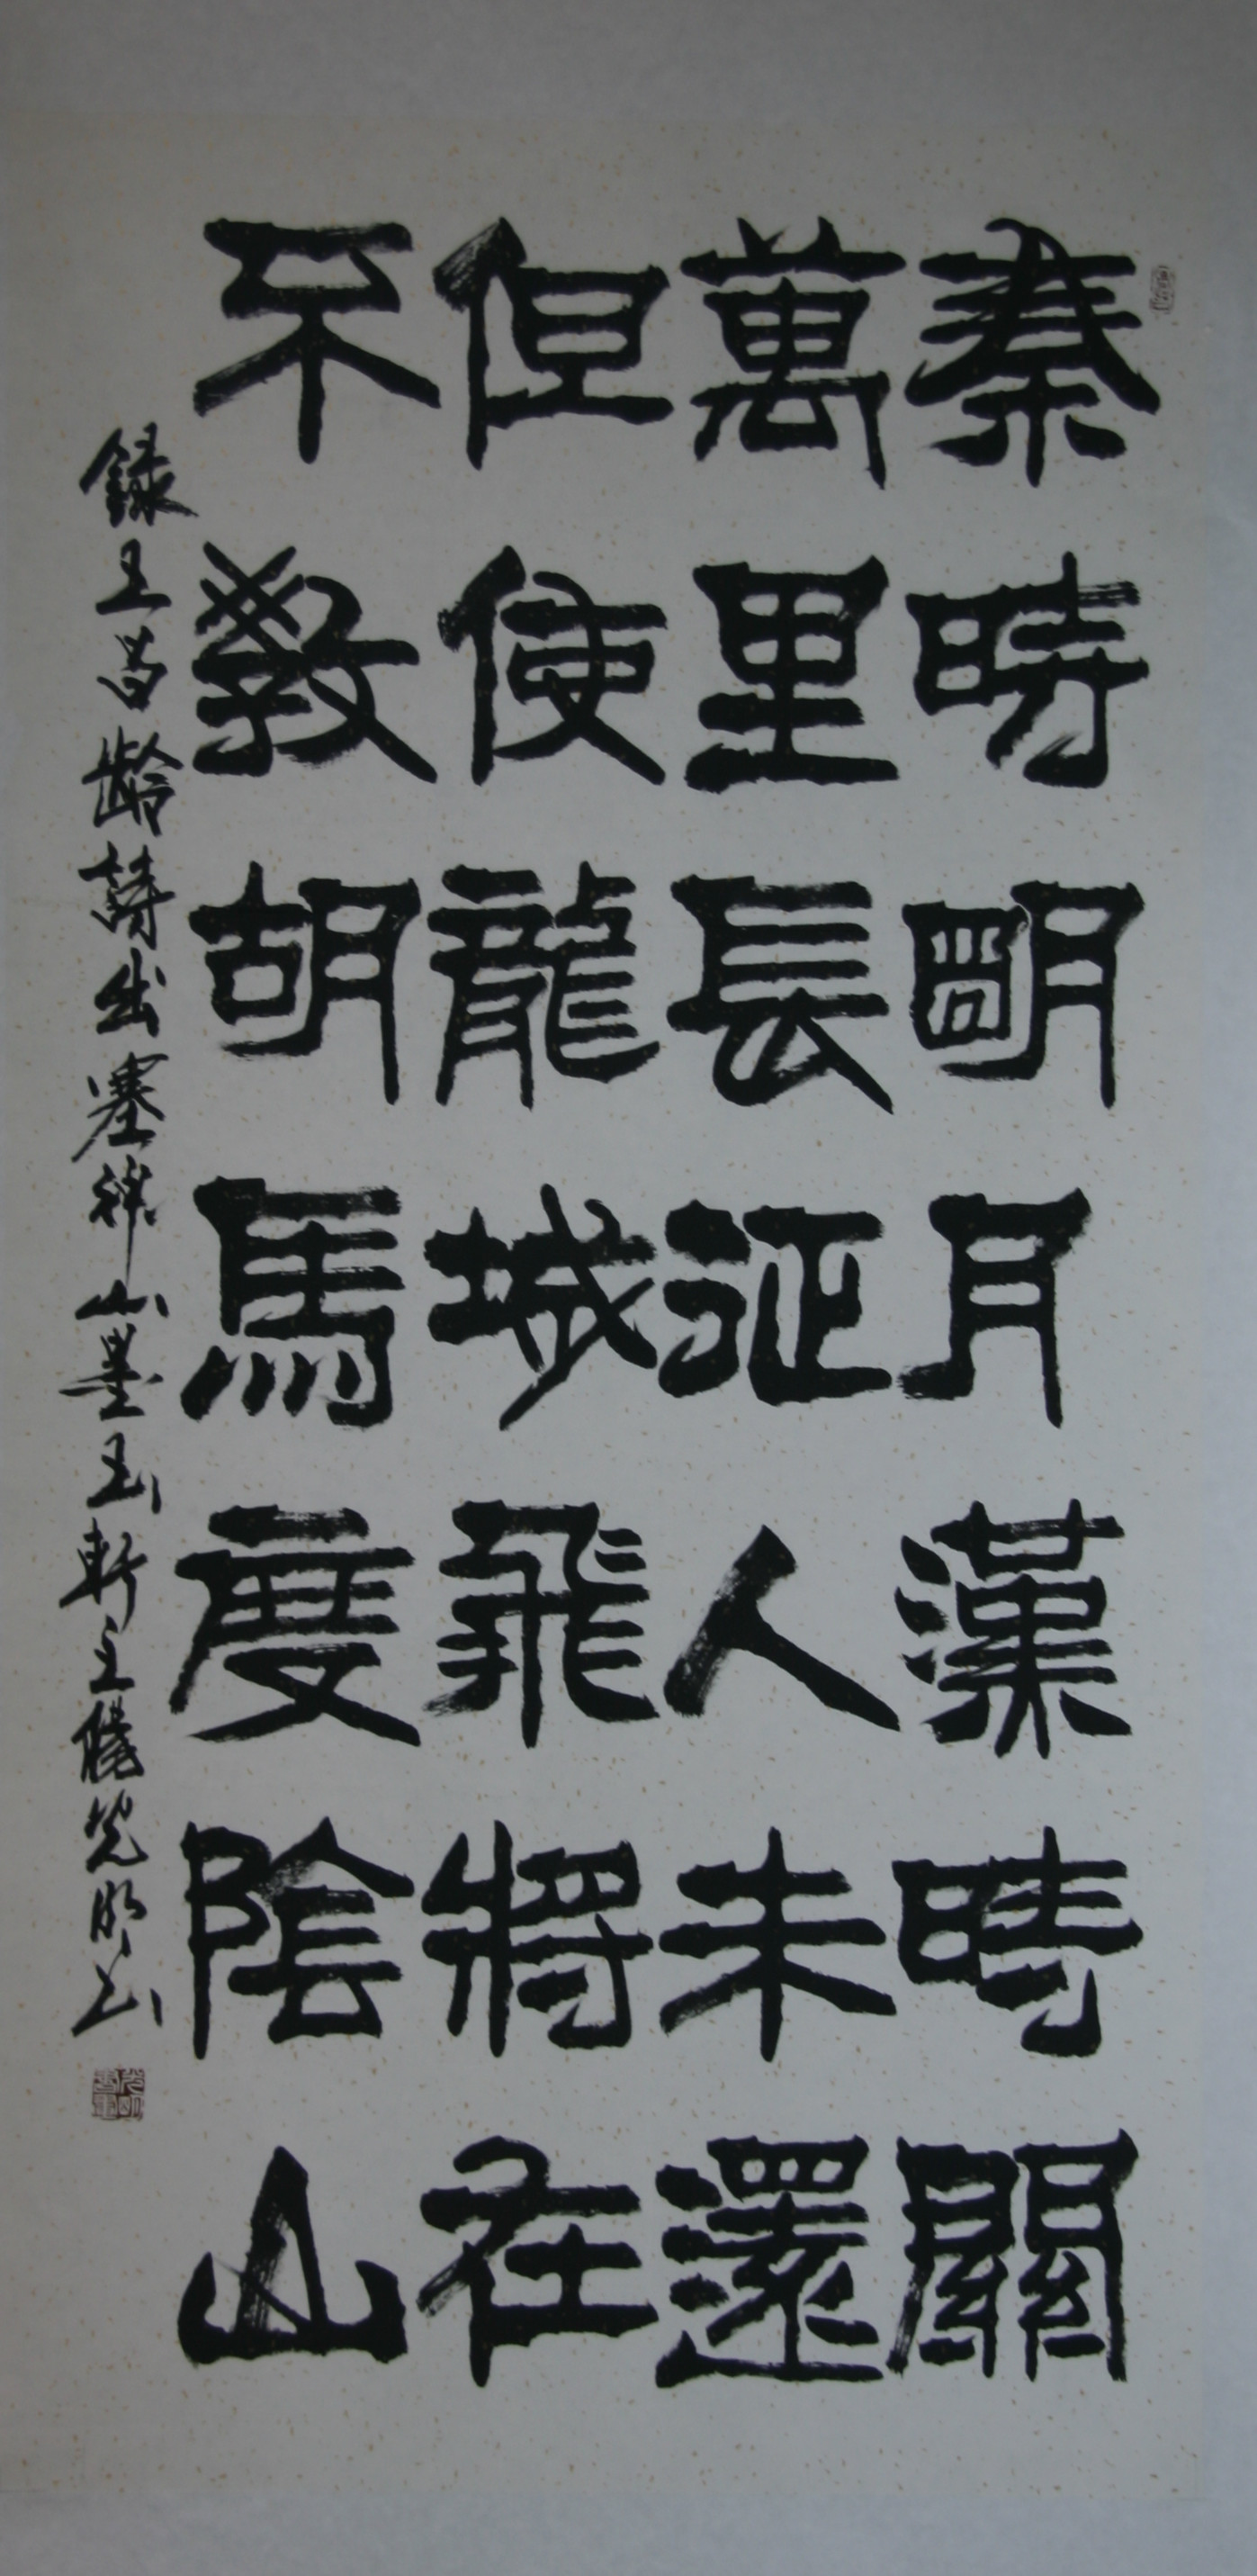 秦時明月漢時關
萬里長征人未還
但使龍城飛將在
不教胡馬度陰山
錄王昌齡詩出塞 山墨玉軒主 光明书